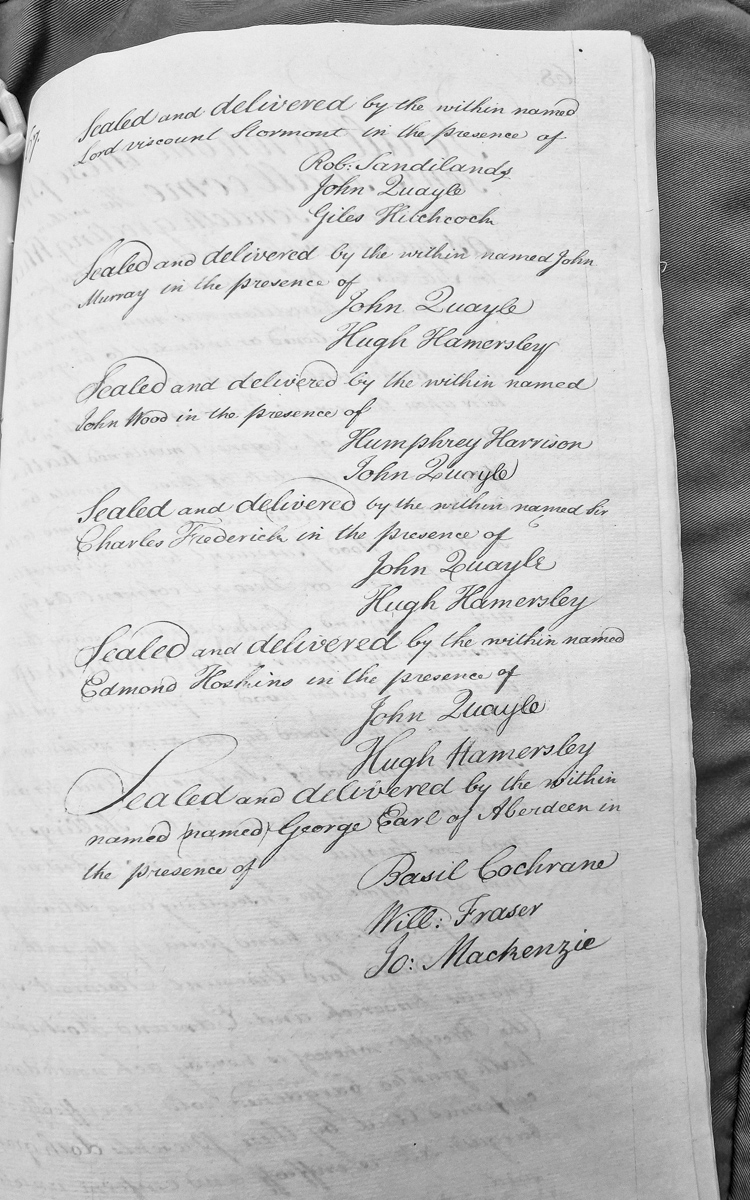 67.
Sealed and delivered by the within named
Lord viscount Stormont in the presence of
Rob: Sandilands
John Quayle
Giles Hitchcock
Sealed and delivered by the within named John
Murray in the presence of
John Quayle
Hugh Hamersley
Sealed and delivered by the within named
John Wood in the presence of
Humphrey Harrison
John Quayle
Sealed and delivered by the within named Sir
Charles Frederick in the presence of
John Quayle
Hugh Hamersley
Sealed and delivered by the within named
Edmond Hoskins in the presence of
John Quayle
Hugh Hamersley
Sealed and delivered by the within
named (named) George Earl of Aberdeen in
the presence of
Basil Cochrane
Will: Fraser
Jo: Mackenzie